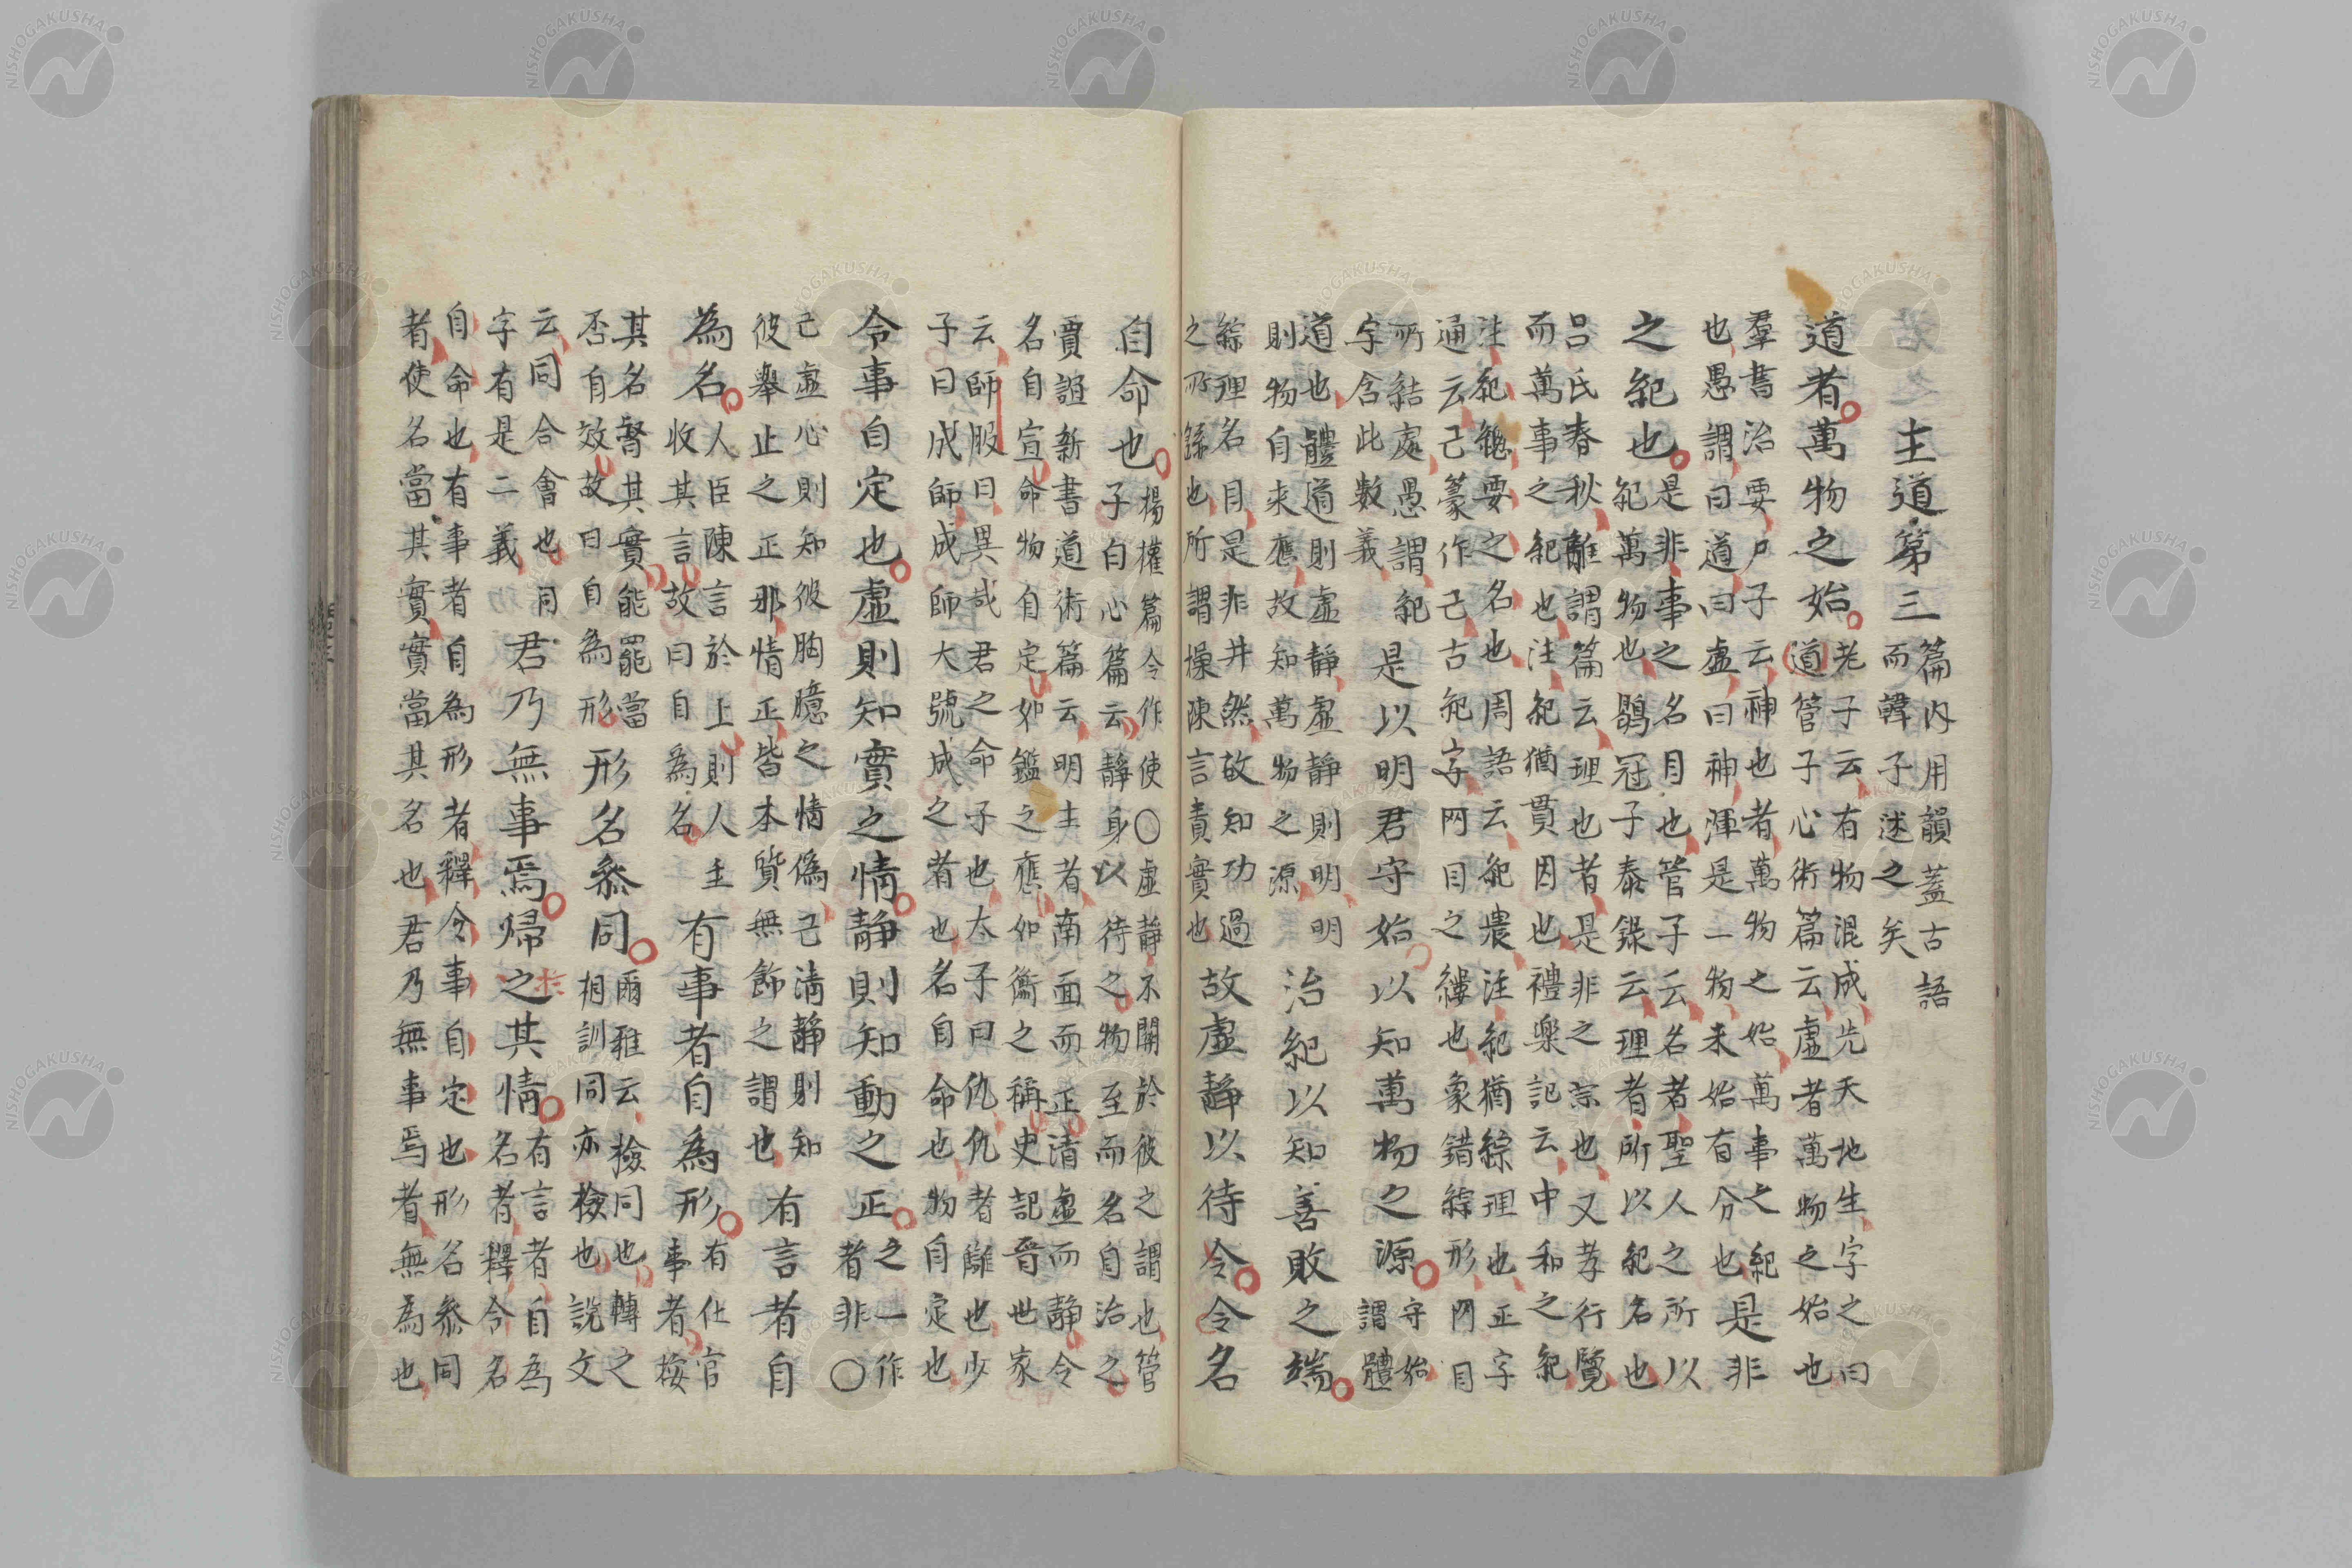 主道第三篇内用韻蓋古語而韓子述之矣
道者萬物之始老子云有物混成先天地生字之曰道管子心術篇云虛者萬物之始也
羣書治要尸子云神也者萬物之始萬事之紀也愚謂曰道曰虛曰神渾是一物未始有分也是非
之紀也是非事之名目也管子云名者聖人之所以紀萬物也鶡冠子泰錄云理者所以紀名也
呂氏春秋離謂篇云理也者是非之宗也又孝行覽而萬事之紀也注紀猶貫因也禮樂記云中和之紀
注紀緫要之名也周語云紀農注紀猶綜理也正字通云己篆作己古紀字网目之縷也象錯綜形門目
所結處愚謂紀字含此數義是以明君守始以知萬物之源守始謂體
道也體道則虛静虛静則明明則物自来應故知萬物之源治紀以知善敗之端
綜理名目是非井然故知功過之所繇也所謂操陳言責實也故虛静以待令令名
自命也楊權篇令作使〇虛静不關於彼之謂也管子白心篇云静身以待之物至而名自治之
賈誼新書道術篇云明主者南面而正清虛而静令名自宣命物自定如鑑之應如衡之稱史記晉世家
云師服曰異哉君之命子也太子曰仇仇者讎也少子曰成師成師大號成之者也名自命也物自定也
令事自定也虛則知實之情静則知動之正之一作者非〇
己虛心則知彼胸臆之情偽己清静則知彼舉止之正邪情正皆本質無飾之謂也有言者自
為名人臣陳言於上則人主收其言故曰自為名有事者自為形有仕官事者按
其名督其實能罷當否自效故曰自為形形名叅同爾雅云檢同也轉之相訓同亦檢也説文
云同合會也同字有是二義君乃無事焉歸之於其情有言者自為名者釋令名
自命也有事者自為形者釋令事自定也形名叅同者使名當其實實當其名也君乃無事焉者無為也